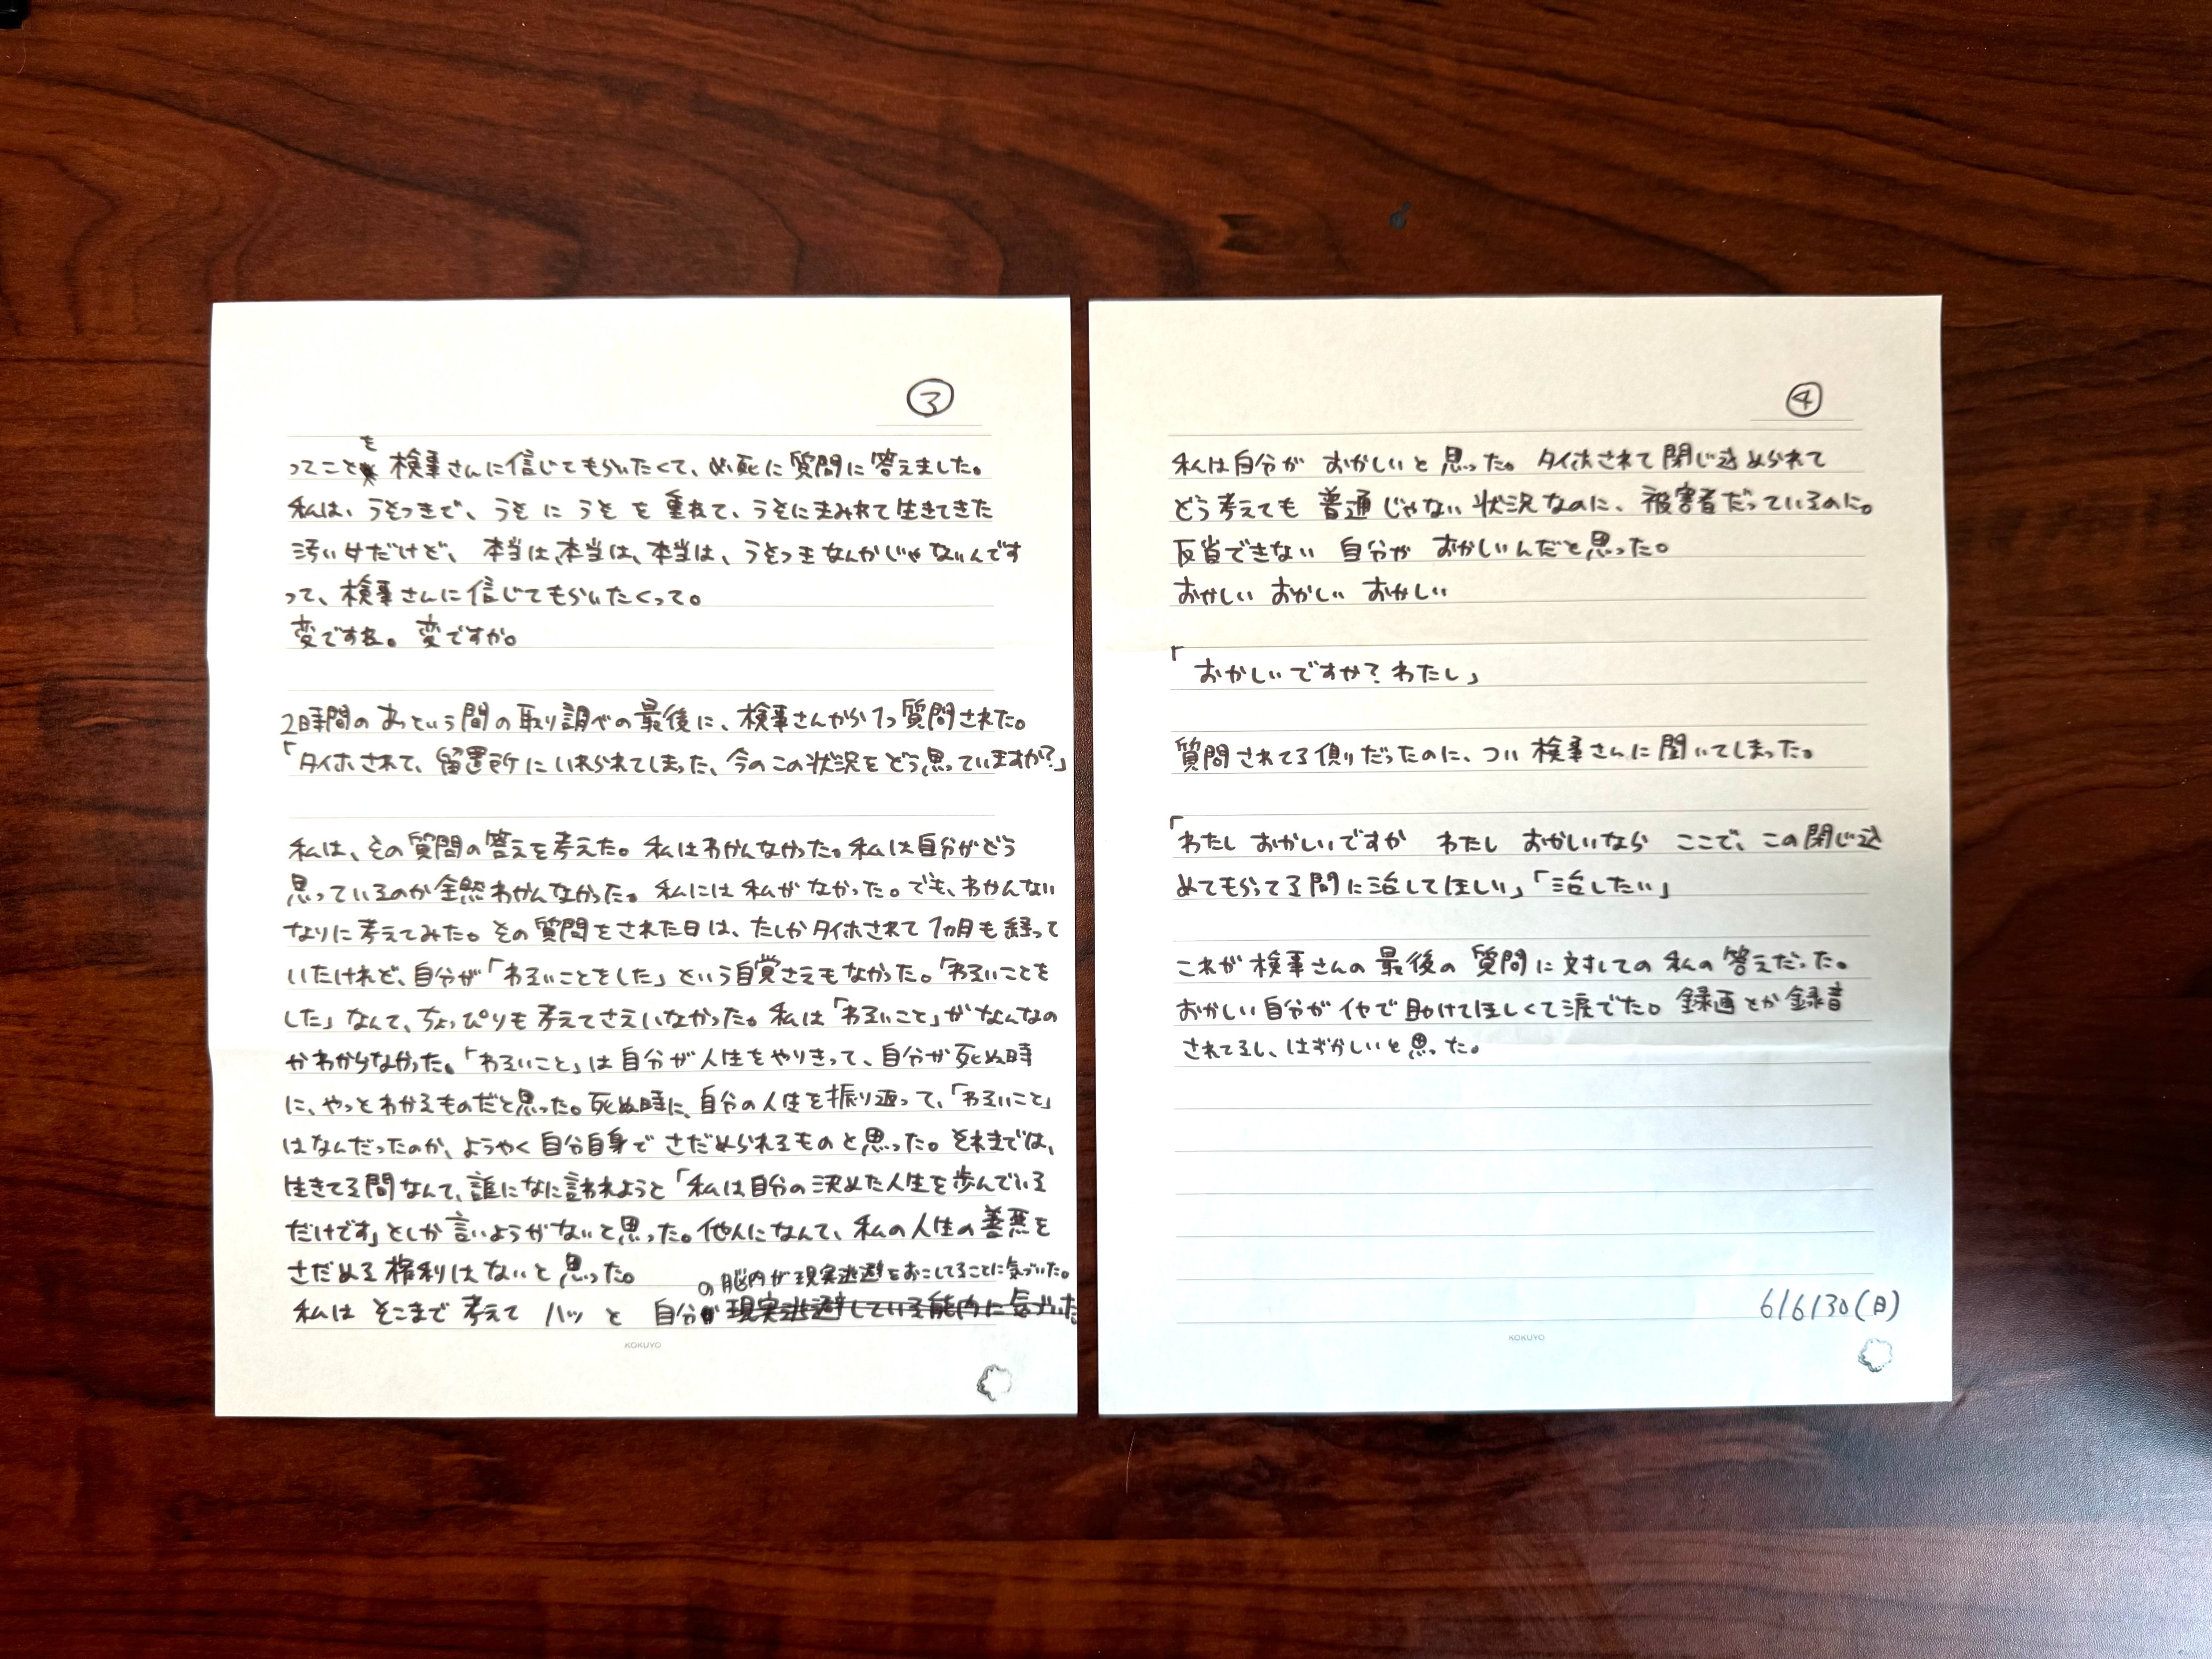 ③
ってことを検事さんに信じてもらいたくて、必死に質問に答えました。
私は、うそつきで、うそにうそを重ねて、うそにまみれて生きてきた
汚い女だけど、本当は、本当は、本当は、うそつきなんかじゃないんです
って、検事さんに信じてもらいたくって。
変ですね。変ですか。
2時間のあっという間の取り調べの最後に、検事さんから1つ質問された。
「タイホされて、留置所にいれられてしまった、今のこの状況をどう思っていますか?」
私は、その質問の答えを考えた。私はわかんなかった。私は自分がどう
思っているのか全然わかんなかった。私には私がなかった。でも、わかんない
なりに考えてみた。その質問をされた日は、たしかタイホされて1ヵ月も経って
いたけれど、自分が「わるいことをした」という自覚さえもなかった。「わるいことを
した」なんて、ちょっぴりも考えてさえいなかった。私は「わるいこと」がなんなの
かわからなかった。「わるいこと」は自分が人生をやりきって、自分が死ぬ時
に、やっとわかるものだと思った。死ぬ時に、自分の人生を振り返って、「わるいこと」
はなんだったのか、ようやく自分自身でさだめられるものと思った。それまでは、
生きてる間なんて、誰になに言われようと「私は自分の決めた人生を歩んでいる
だけです」としか言いようがないと思った。他人になんて、私の人生の善悪を
さだめる権利はないと思った。
の脳内が現実逃避をおこしてることに気づいた。
私はそこまで考えて ハッ と 自分が現実逃避している脳内に気づいた
KOKUYO
④
私は自分が おかしいと思った。タイホされて閉じ込められて
どう考えても 普通じゃない状況なのに、被害者だっているのに。
反省できない 自分が おかしいんだと思った。
おかしい おかしい おかしい
「おかしいですか? わたし」
質問されてる側だったのに、つい検事さんに聞いてしまった。
「わたし おかしいですか わたし おかしいなら ここで、この閉じ込
めてもらってる間に治してほしい」「治したい」
これが検事さんの最後の質問に対しての私の答えだった。
おかしい自分がイヤで助けてほしくて涙でた。録画とか録音
されてるし、はずかしいと思った。
6/6/30(日)
KOKUYO